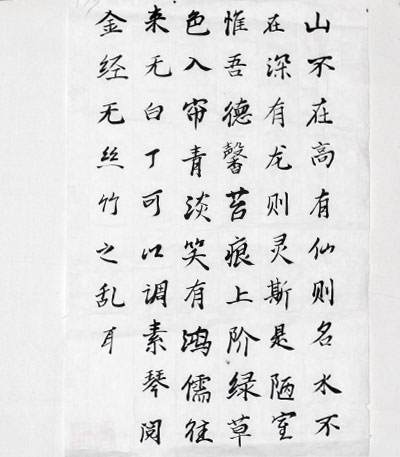 山不在高有仙则名水不
在深有龙则灵斯是陋室
惟吾德馨苔痕上阶绿草
色入帘青淡笑有鸿儒往
来无白丁可以调素琴阅
金经无丝竹之乱耳